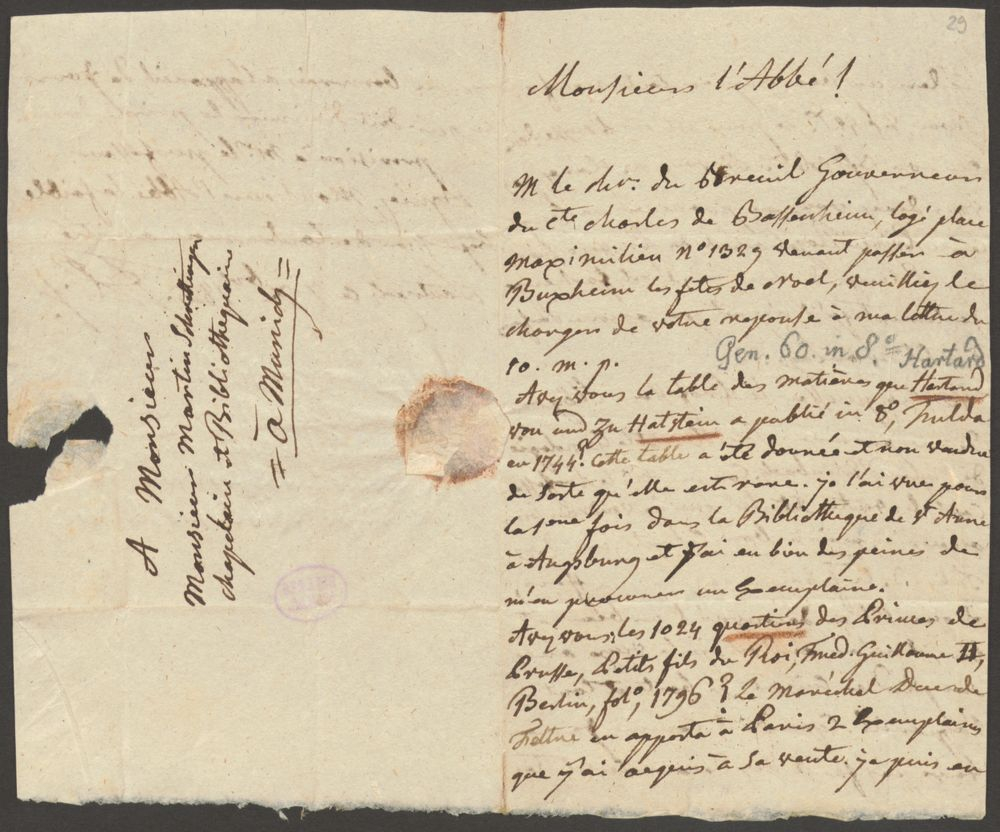 A Monsieur
Monsieur Martin Schrettinger
chapelain et Bibliothequaire
= à Munich =
29
Monsieur l'Abbé!
M le chr. du Breuil Gouverneur
du cte charles de Bassenheim, logé place
Maximilien no 1329 venant passer à
Buxheim les fêtes de noel, veuilliez le
charger de votre reponse à ma lettre du
10. m. p.
Gen. 60. in 8.o Hartard
Avez vous la table des matières que Hartard
von und zu Hatstein a publié in 8o, Fulda
en 1744? cette table a été donnée et non vendue
de sorte qu'elle est rare. je l'ai vue pour
la 1ere fois dans la Bibliotheque de St Anne
à Augsburg et j'ai eu bien des peines de
m'en procurer un Exemplaire.
Avez vous les 1024 quartiers des Princes de
Prusse, Petits fils du Roi, Fred. Guillaume II,
Berlin, folo, 1796? le Maréchal Duc de
Feltre en apporta à Paris 2 Exemplaires
que j'ai acquis à sa vente. je puis en